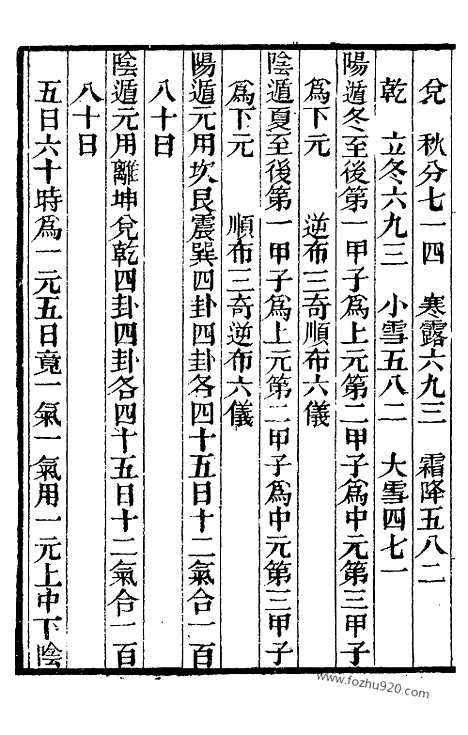 兌　秋分七一四　寒露六九三　霜降五八二
乾　立冬六九三　小雪五八二　大雪四七一
陽遁冬至後第一甲子爲上元第二甲子爲中元第三甲子
爲下元　逆布三奇順布六儀
陰遁夏至後第一甲子爲上元第二甲子爲中元第三甲子
爲下元　順布三奇逆布六儀
陽遁元用坎艮震巽四卦四卦各四十五日十二氣合一百
八十日
陰遁元用離坤兌乾四卦四卦各四十五日十二氣合一百
八十日
五日六十時爲一元五日竟一氣一氣用一元上中下陰
www.fozhu920.com